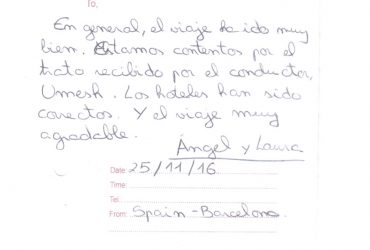 To,
En general, el viaje ha ido muy
bien. Estamos contentos por el
trato recibido por el conductor,
Umesh. Los hoteles han sido
corectos. Y el viaje muy
agradable.
Ángel y Laura
Date: 25/11/16
Time:
Tel:
From: Spain-Barcelona.